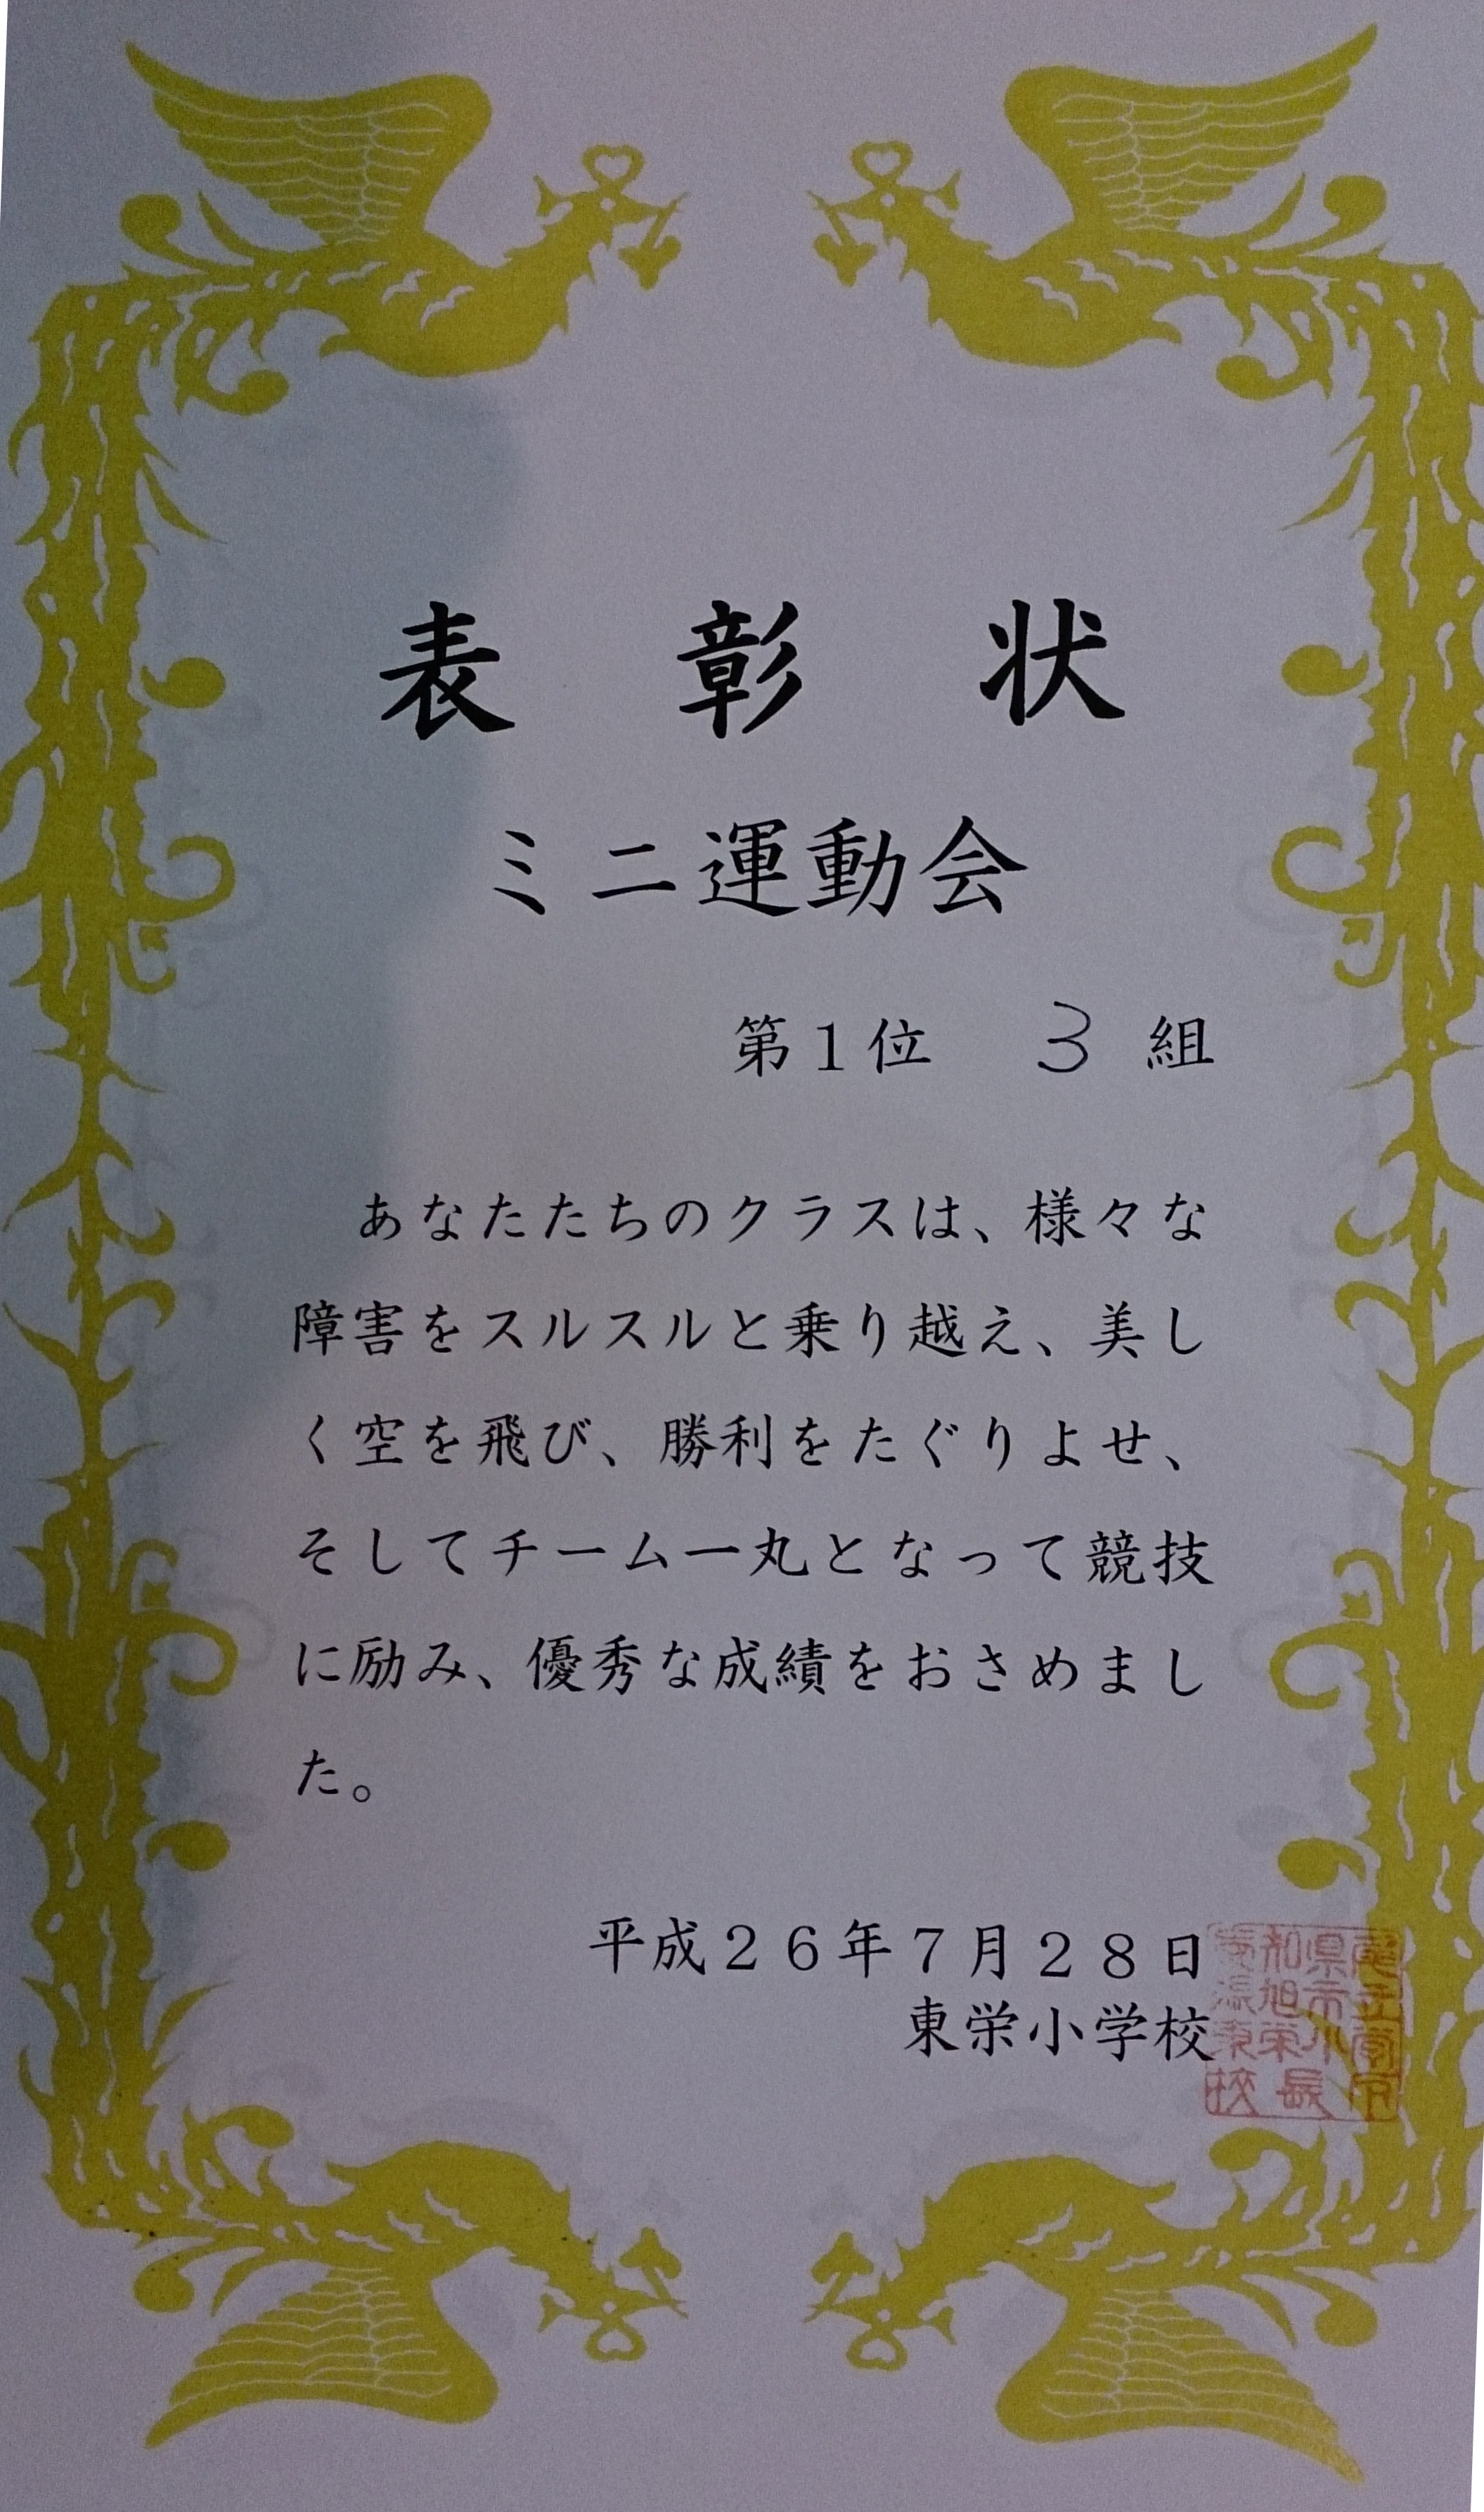 表彰状
ミニ運動会
第1位 3 組
あなたたちのクラスは、様々な
障害をスルスルと乗り越え、美し
く空を飛び、勝利をたぐりよせ、
そしてチーム一丸となって競技
に励み、優秀な成績をおさめまし
た。
平成26年7月28日
東栄小学校